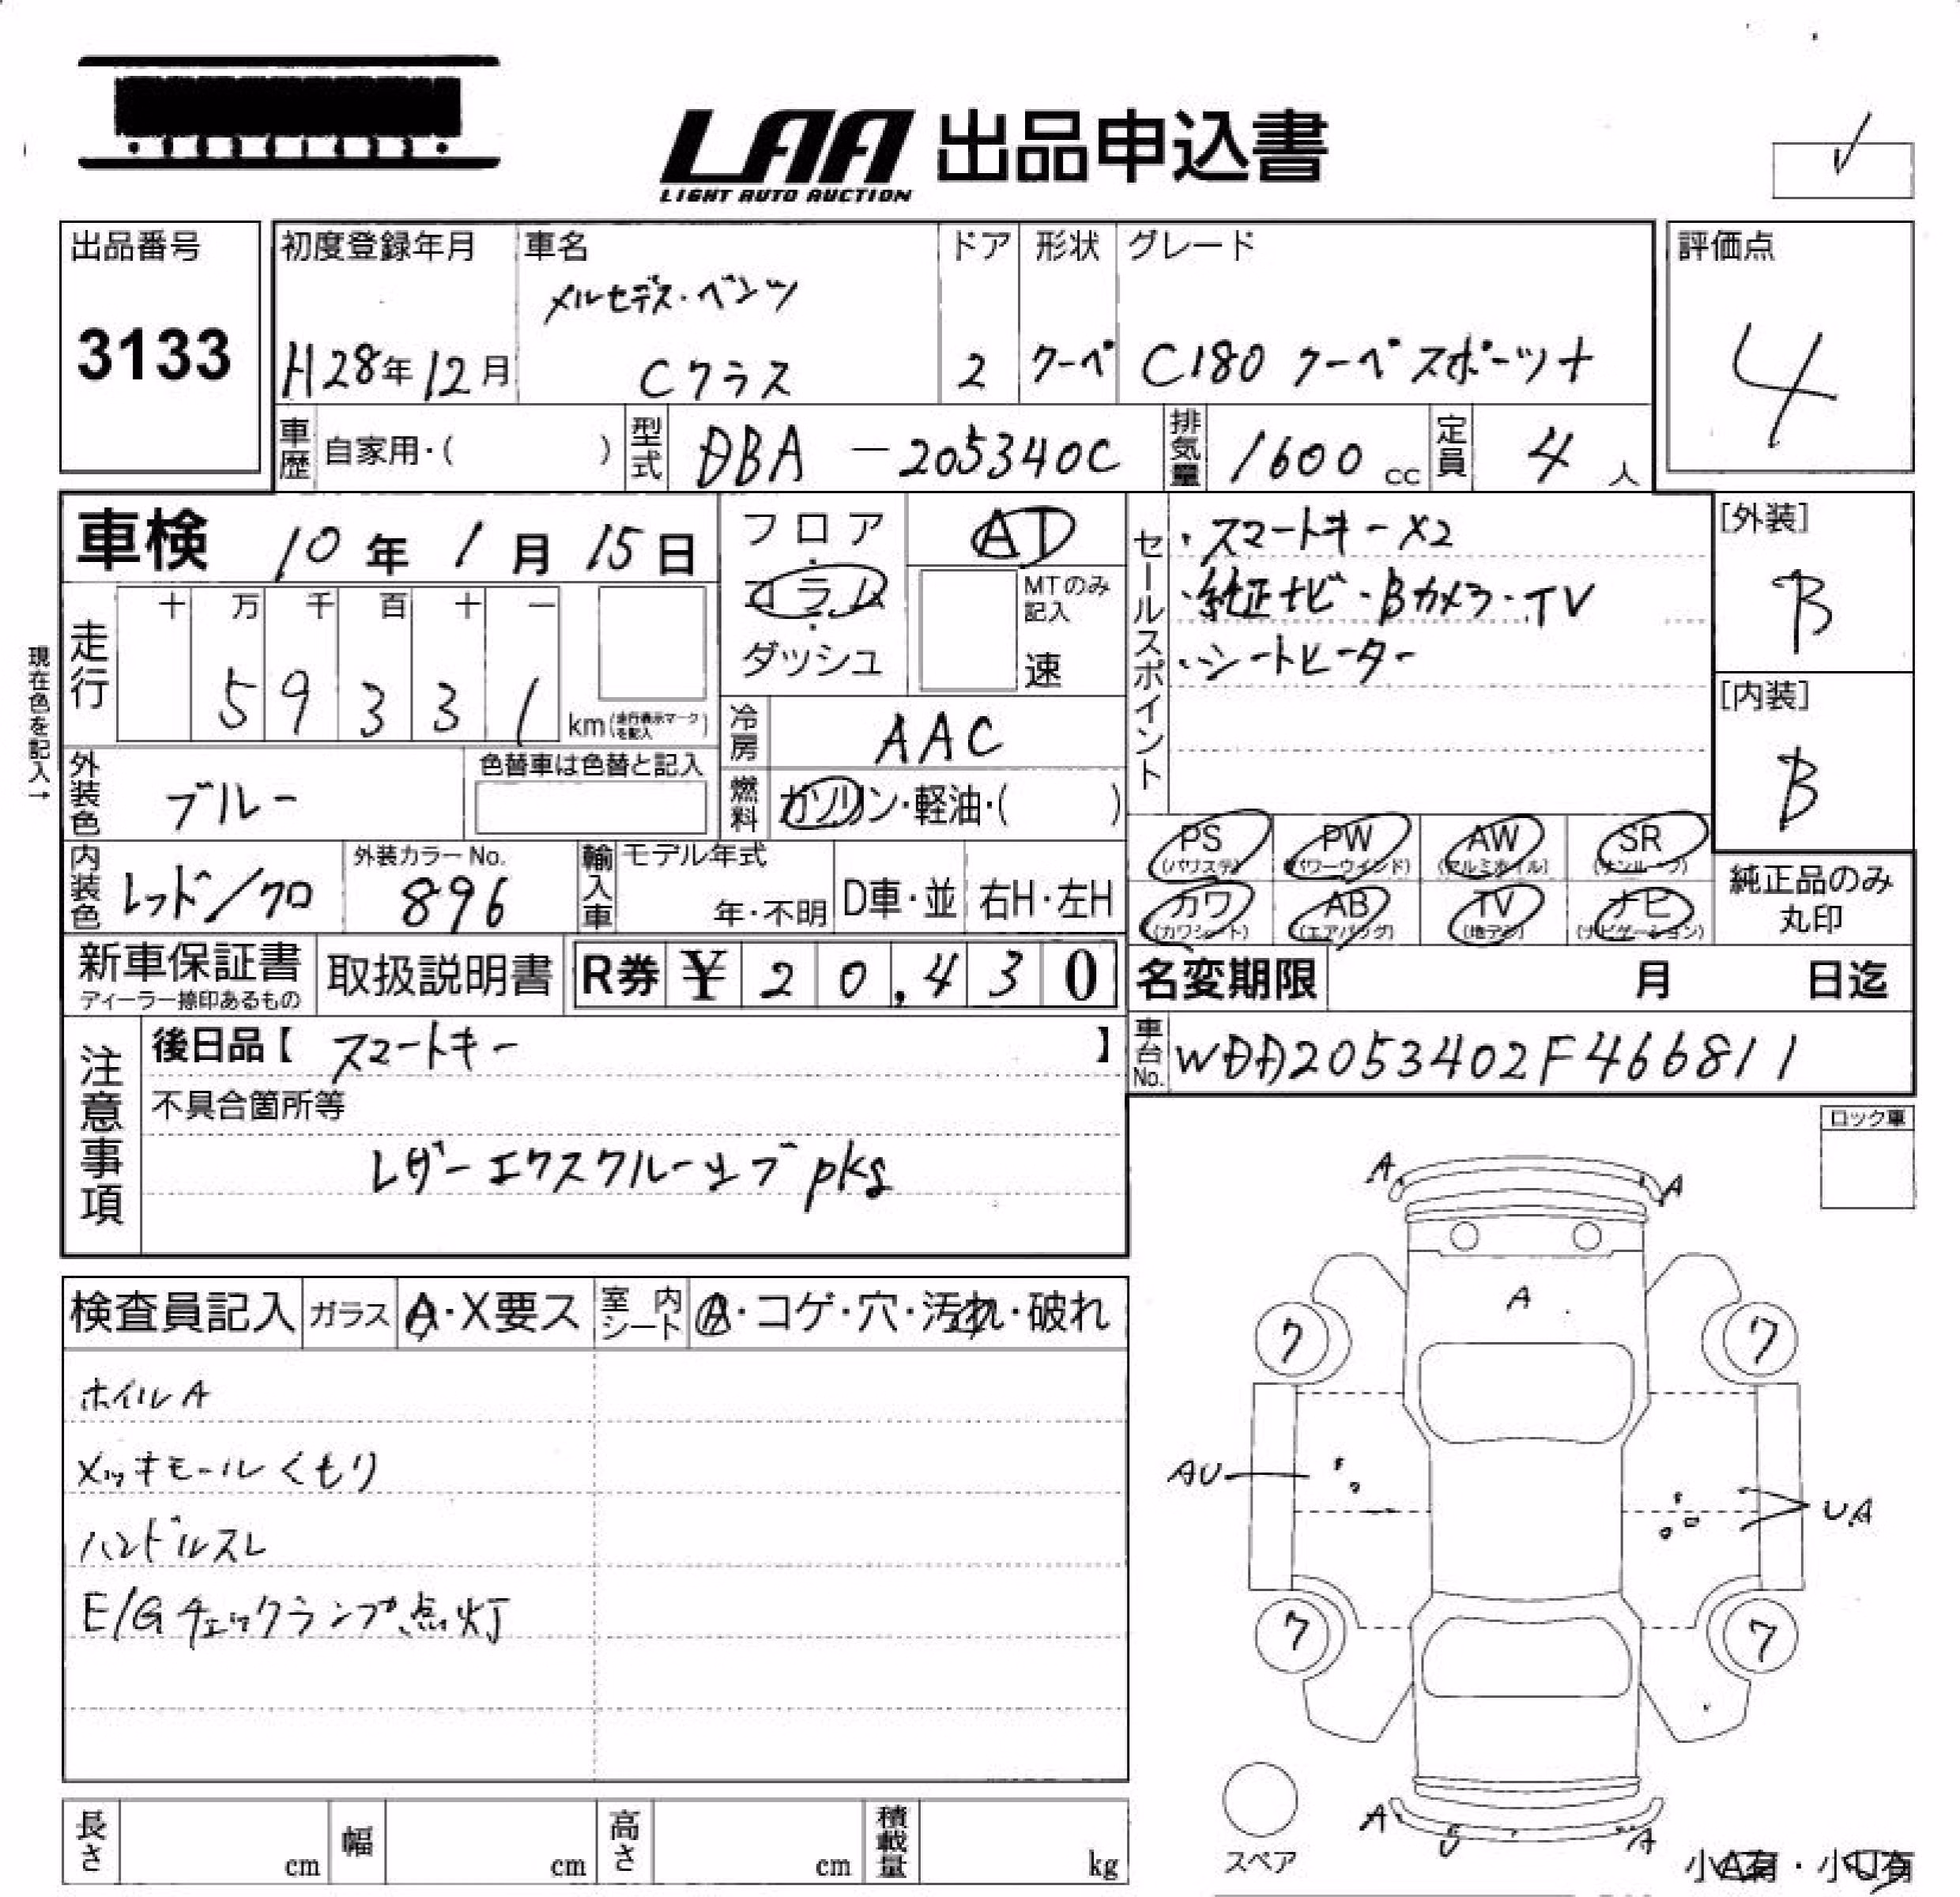 LAA 出品申込書
LIGHT AUTO AUCTION
出品番号
3133
初度登録年月
H28年12月
車名
メルセデス・ベンツ
Cクラス
ドア
2
形状
クーペ
グレード
C180 クーペ スポーツ+
評価点
4
車歴 自家用・( )
型式 DBA-205340C
排気量 1600 cc
定員 4 人
車検 10年1月15日
フロア・コラム・ダッシュ
AT
MTのみ記入
速
走行
十 万 千 百 十 一
5 9 3 3 1 km (走行表示マークを記入)
現在色を記入→
冷房 AAC
燃料 ガソリン・軽油・( )
外装色 ブルー
色替車は色替と記入
内装色 レッド/クロ
外装カラーNo.
896
輸入車
モデル年式
年・不明
D車・並
右H・左H
セールスポイント
・スマートキーX2
・純正ナビ・Bカメラ・TV
・シートヒーター
[外装]
B
[内装]
B
PS (パワステ)
PW (パワーウインド)
AW (アルミホイル)
SR (サンルーフ)
カワ (カワシート)
AB (エアバッグ)
TV (地デジ)
ナビ (ナビゲーション)
純正品のみ
丸印
新車保証書
ディーラー捺印あるもの
取扱説明書
R券 ¥ 20,430
名変期限 月 日迄
車台No. WDD2053402F466811
注意事項
後日品【 スマートキー 】
不具合箇所等
レザーエクスクルーシブpkg
ロック車
検査員記入
ガラス A・X要ス
室内シート A・コゲ・穴・汚れ・破れ
ホイルA
メッキモールくもり
ハンドルスレ
E/Gチェックランプ点灯
A
A
A
ワ
ワ
AU
UA
ワ
ワ
A
A
スペア
小A有・小U有
長さ cm
幅 cm
高さ cm
積載量 kg